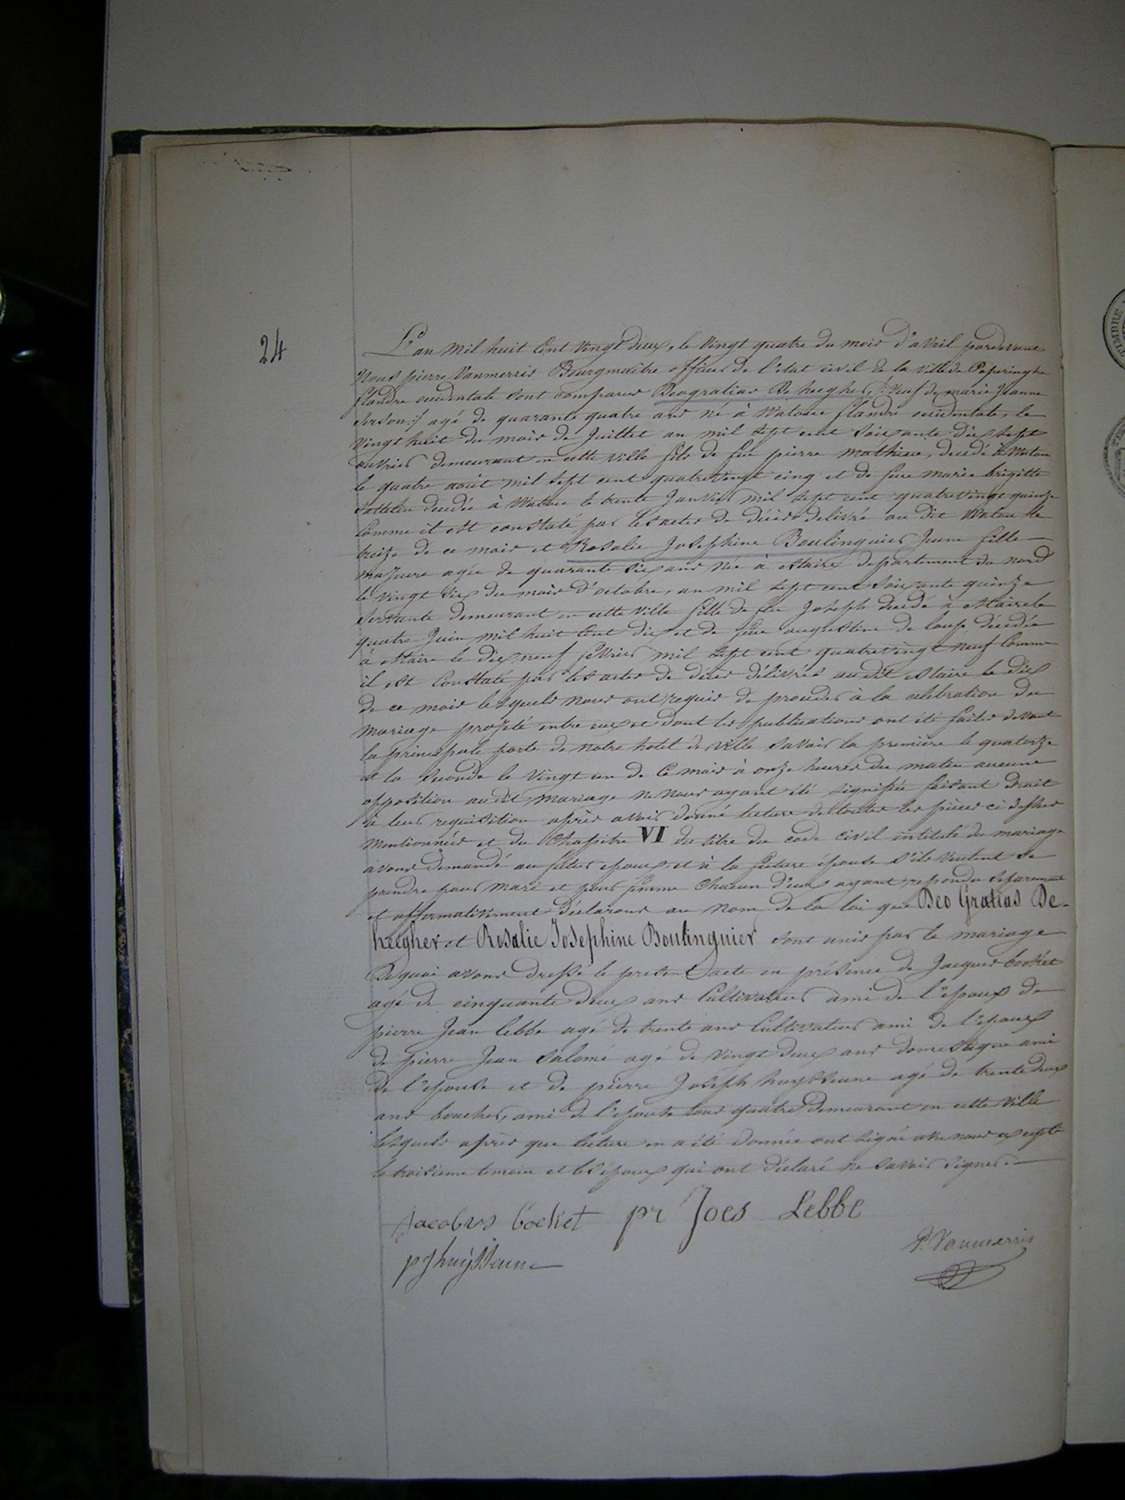 24
L'an mil huit cent vingt deux, le vingt quatre du mois d'avril pardevant
Nous pierre Vanmerris Bourgmaitre officier de l'etat civil de la Ville de Poperinghe
flandre occidentale sont comparus Deogratias De heegher, Veuf de marie Jeanne
agé de quarante quatre ans né à Watoue flandre occidentale, le
vingt huit du mois de Juillet an mil sept cent soixante dix sept
ouvrier demeurant en cette ville fils de feu pierre mathieu, decedé à Watou
le quatre août mil sept cent quatrevingt cinq et de feue marie brigitte
decedée à Watoue le trente Janvier mil sept cent quatrevingt quinze
Comme il est constaté par les actes de décès delivré au dit Watou le
treize de ce mois et Rosalie Josephine Boulinguier Jeune fille
majeure agée de quarante six ans née à Staire departement du nord
le vingt six du mois d'octobre, an mil sept cent soixante quinze
servante demeurant en cette ville fille de feu Joseph decedé à Staire le
quatre Juin mil huit Cent dix et de feue augustine de loup décédée
à Staire le dix neuf fevrier mil sept cent quatrevingt neuf Comme
il est Constaté par les actes de décès délivrés audit Staire le dix
de ce mois lesquels nous ont requis de proceder à la celebration du
Mariage projeté entre eux et dont les publications ont été faites devant
la principale porte de notre hotel de ville savoir la premiere le quatorze
et la seconde le vingt un de Ce mois à onze heures du matin aucune
opposition audit mariage ne nous ayant été signifiée faisant droit
à leur requisition après avoir donné lecture de toutes les pièces ci dessus
mentionnées et du Chapitre VI du titre du code civil intitulé du mariage
avons demandé au futur epoux et à la future épouse s'ils veulent se
prendre pour mari et pour femme chacun d'eux ayant repondu separement
et affirmativement déclarons au nom de la loi que Deo Gratias De-
heegher et Rosalie Josephine Boulinguier sont unis par le mariage
De quoi avons dressé le present acte en présence de Jacques Cockèt
agé de cinquante deux ans Cultivateur ami de l'epoux de
pierre Jean Lebbe agé de trente ans Cultivateur ami de l'epoux
de pierre Jean Salomé agé de vingt deux ans domestique ami
de l'epouse et de pierre Joseph huyssune agé de trente deux
ans boucher, ami de l'epouse tous quatre demeurant en cette ville
lesquels après que lecture en a été donnée ont signé avec nous excepté
le troisieme temoin et les epoux qui ont déclaré ne savoir signer.
Jacobus Cockiet pr Joes Lebbe
P. Vanmerris